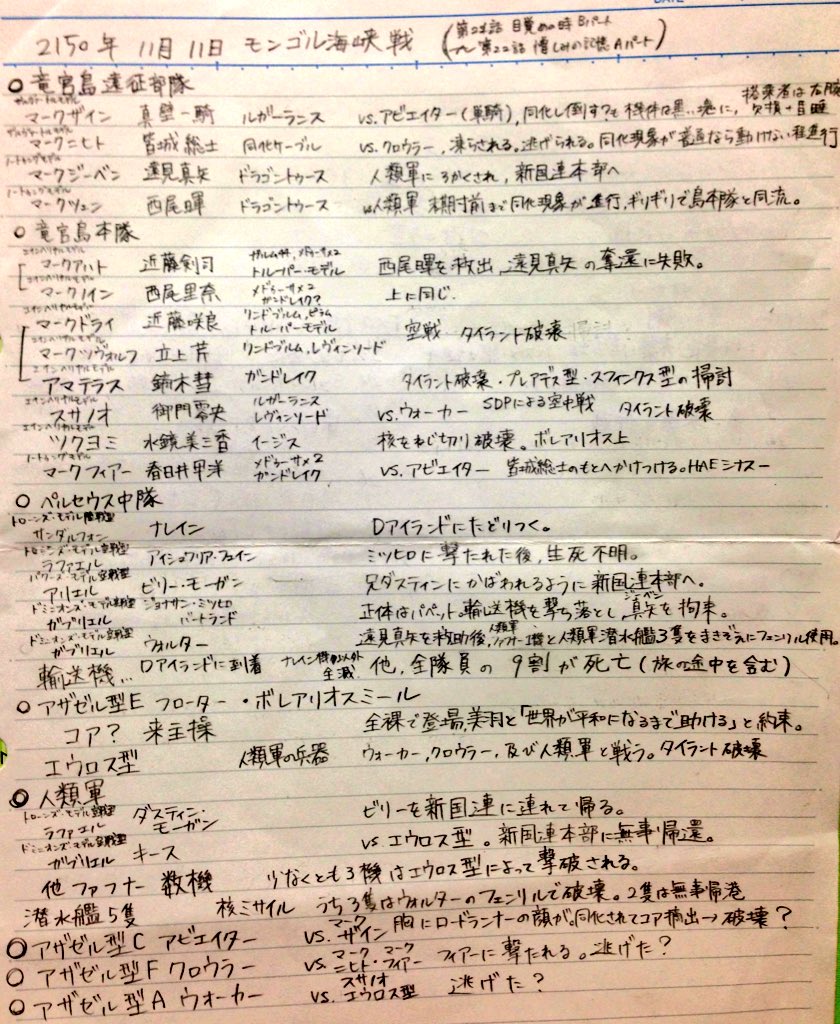 DATE
2150年 11月11日 モンゴル海峡戦 (第21話 目覚めの時 Bパート 〜第22話 憎しみの記憶 Aパート)
○ 竜宮島遠征部隊
搭乗者は右腕
ザルヴァートルモデル
マークザイン 真壁一騎 ルガーランス vs.アビエイター(単騎),同化し倒す?も機体は黒い塊に, 欠損+昏睡
ザルヴァートルモデル
マークニヒト 皆城総士 同化ケーブル vs.クロウラー,凍らされる。逃げられる。同化現象が普通なら動けない程進行
ノートゥングモデル
マークジーベン 遠見真矢 ドラゴントゥース 人類軍にろかくされ,新国連本部へ
ノートゥングモデル
マークツェン 西尾暉 ドラゴントゥース vs人類軍 棺桶寸前まで同化現象が進行,ギリギリで島本隊と合流。
○ 竜宮島本隊
エインヘリアルモデル
マークアハト 近藤剣司 ガルム44,メドゥーサ×2 トルーパーモデル 西尾暉を救出,遠見真矢の奪還に失敗。
エインヘリアルモデル
マークノイン 西尾里奈 メドゥーサ×2 ガンドレイク? 上に同じ.
エインヘリアルモデル
マークドライ 近藤咲良 リンドブルム,ピラム トルーパーモデル 空戦 タイラント破壊
エインヘリアルモデル
マークツヴォルフ 立上芹 リンドブルム,レヴィンソード
エインヘリアルモデル
アマテラス 鏑木彗 ガンドレイク タイラント破壊・プレアデス型・スフィンクス型の掃討
エインヘリアルモデル
スサノオ 御門零央 ルガーランス レヴィンソード vs.ウォーカー SDPによる空中戦 タイラント破壊
エインヘリアルモデル
ツクヨミ 水鏡美三香 イージス 核をねじ切り破壊。ボレアリオス上
ノートゥングモデル
マークフィアー 春日井甲洋 メドゥーサ×2 ガンドレイク vs.アビエイター 皆城総士のもとへかけつける。HAEシナスー
○ ペルセウス中隊
トローンズ・モデル陸戦型
サンダルフォン ナレイン Dアイランドにたどりつく。
トローンズ・モデル空戦型
ラファエル アイシュワリア・フェイン ミツヒロに撃たれた後,生死不明。
パワーズ・モデル空戦型
アリエル ビリー・モーガン 兄ダスティンにかばわれるように新国連本部へ。
ドミニオンズ・モデル空戦型
ガブリエル ジョナサン・ミツヒロ バートランド 正体はパペット。輸送機を撃ち落とし,真矢を拘束。
ジーベン
ドミニオンズ・モデル空戦型
ガブリエル ウォルター 遠見真矢を救助後,人類軍ファフナー1機と人類軍潜水艦3隻をまきぞえにフェンリル使用。
輸送機… Dアイランドに到着 ナレイン機のみ以外全滅 他,全隊員の9割が死亡(旅の途中を含む)
○ アザゼル型E フローター・ボレアリオスミール
コア? 来主操 全裸で登場,美月と「世界が平和になるまで助ける」と約束。
エウロス型 人類軍の兵器 ウォーカー,クロウラー,及び人類軍と戦う。タイラント破壊
○ 人類軍
トローンズ・モデル空戦型
ラファエル ダスティン・モーガン ビリーを新国連に連れて帰る。
ドミニオンズ・モデル空戦型
ガブリエル キース vs.エウロス型。新国連本部に無事帰還。
他ファフナー 数機 少なくとも3機はエウロス型によって撃破される。
潜水艦5隻 核ミサイル うち3隻はウォルターのフェンリルで破壊。2隻は無事帰港
○ アザゼル型C アビエイター vs.マークザイン 胸にロードランナーの顔が。同化されてコア摘出→破壊?
○ アザゼル型F クロウラー vs.マークニヒト・マークフィアー フィアーに撃たれる。逃げた?
○ アザゼル型A ウォーカー vs.スサノオ エウロス型 逃げた?